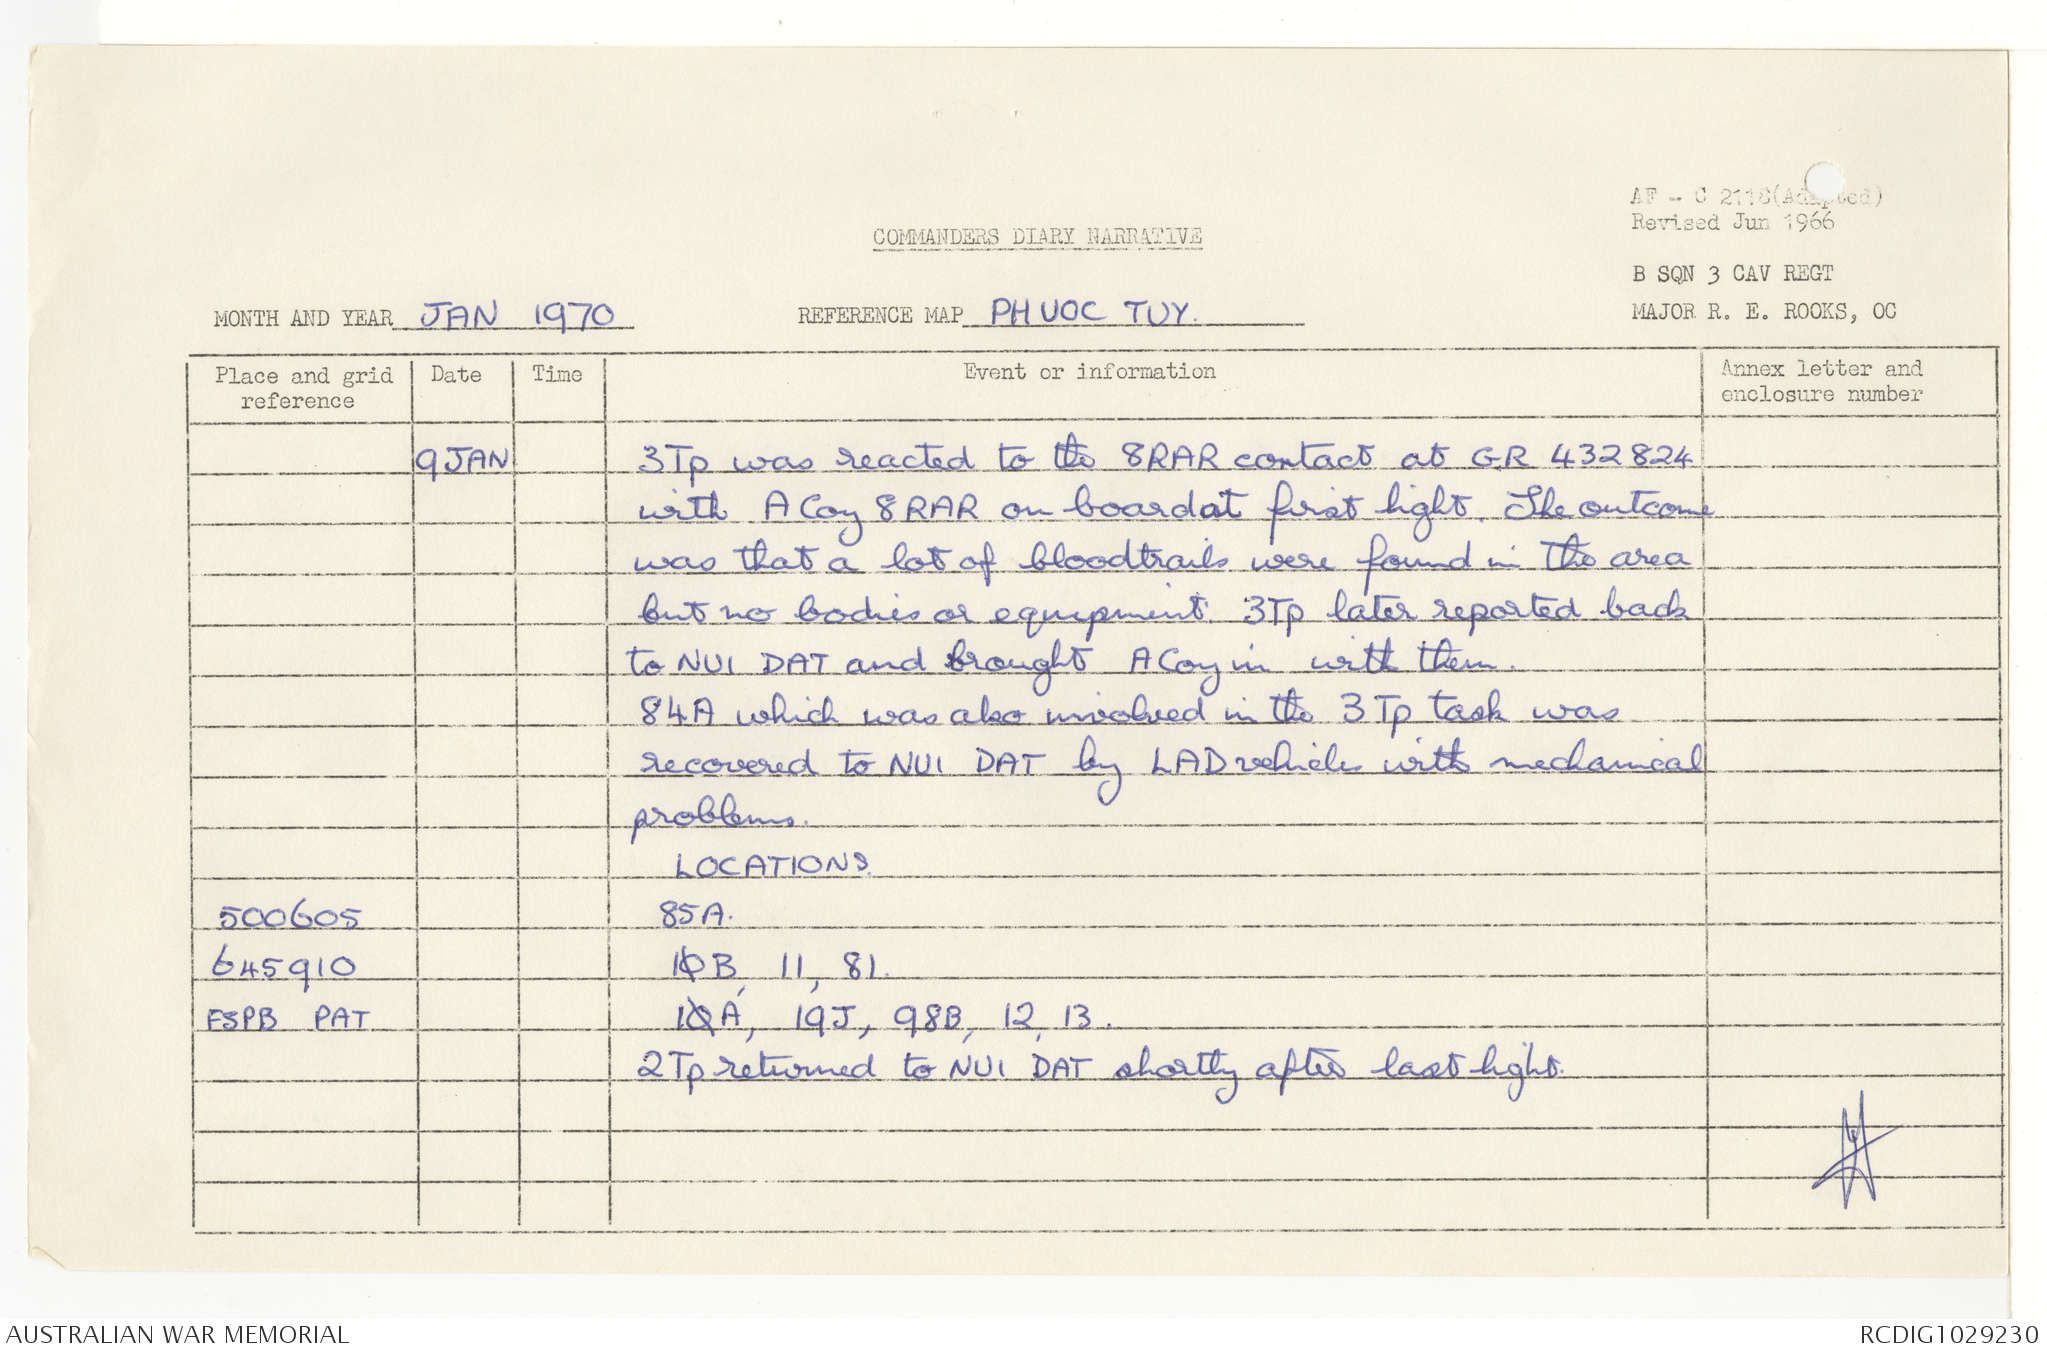 AF - C 2118(Adapted)
Revised Jun 1966
COMMANDERS DIARY NARRATIVE
B SQN 3 CAV REGT
MONTH AND YEAR JAN 1970 REFERENCE MAP PHUOC TUY. MAJOR R. E. ROOKS, OC
Place and grid reference Date Time Event or information Annex letter and enclosure number
9JAN 3Tp was reacted to the 8RAR contact at GR 432824
with A Coy 8RAR on board at first light. The outcome
was that a lot of bloodtrails were found in the area
but no bodies or equipment. 3Tp later reported back
to NUI DAT and brought A Coy in with them.
84A which was also involved in the 3Tp task was
recovered to NUI DAT by LAD vehicles with mechanical
problems.
LOCATIONS.
500605 85A.
645910 10B, 11, 81.
FSPB PAT 10A, 19J, 98B, 12, 13.
2Tp returned to NUI DAT shortly after last light.
AUSTRALIAN WAR MEMORIAL RCDIG1029230